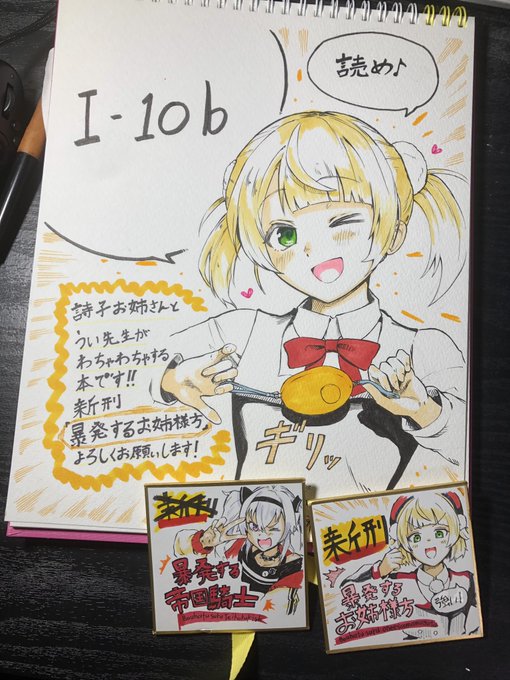 I-10b
読め♪
詩子お姉さんと
うい先生が
わちゃわちゃする
本です!!
新刊
「暴発するお姉様方」
よろしくお願いします!
ギリッ
新刊
暴発する
帝国騎士
新刊
暴発する
お姉様方